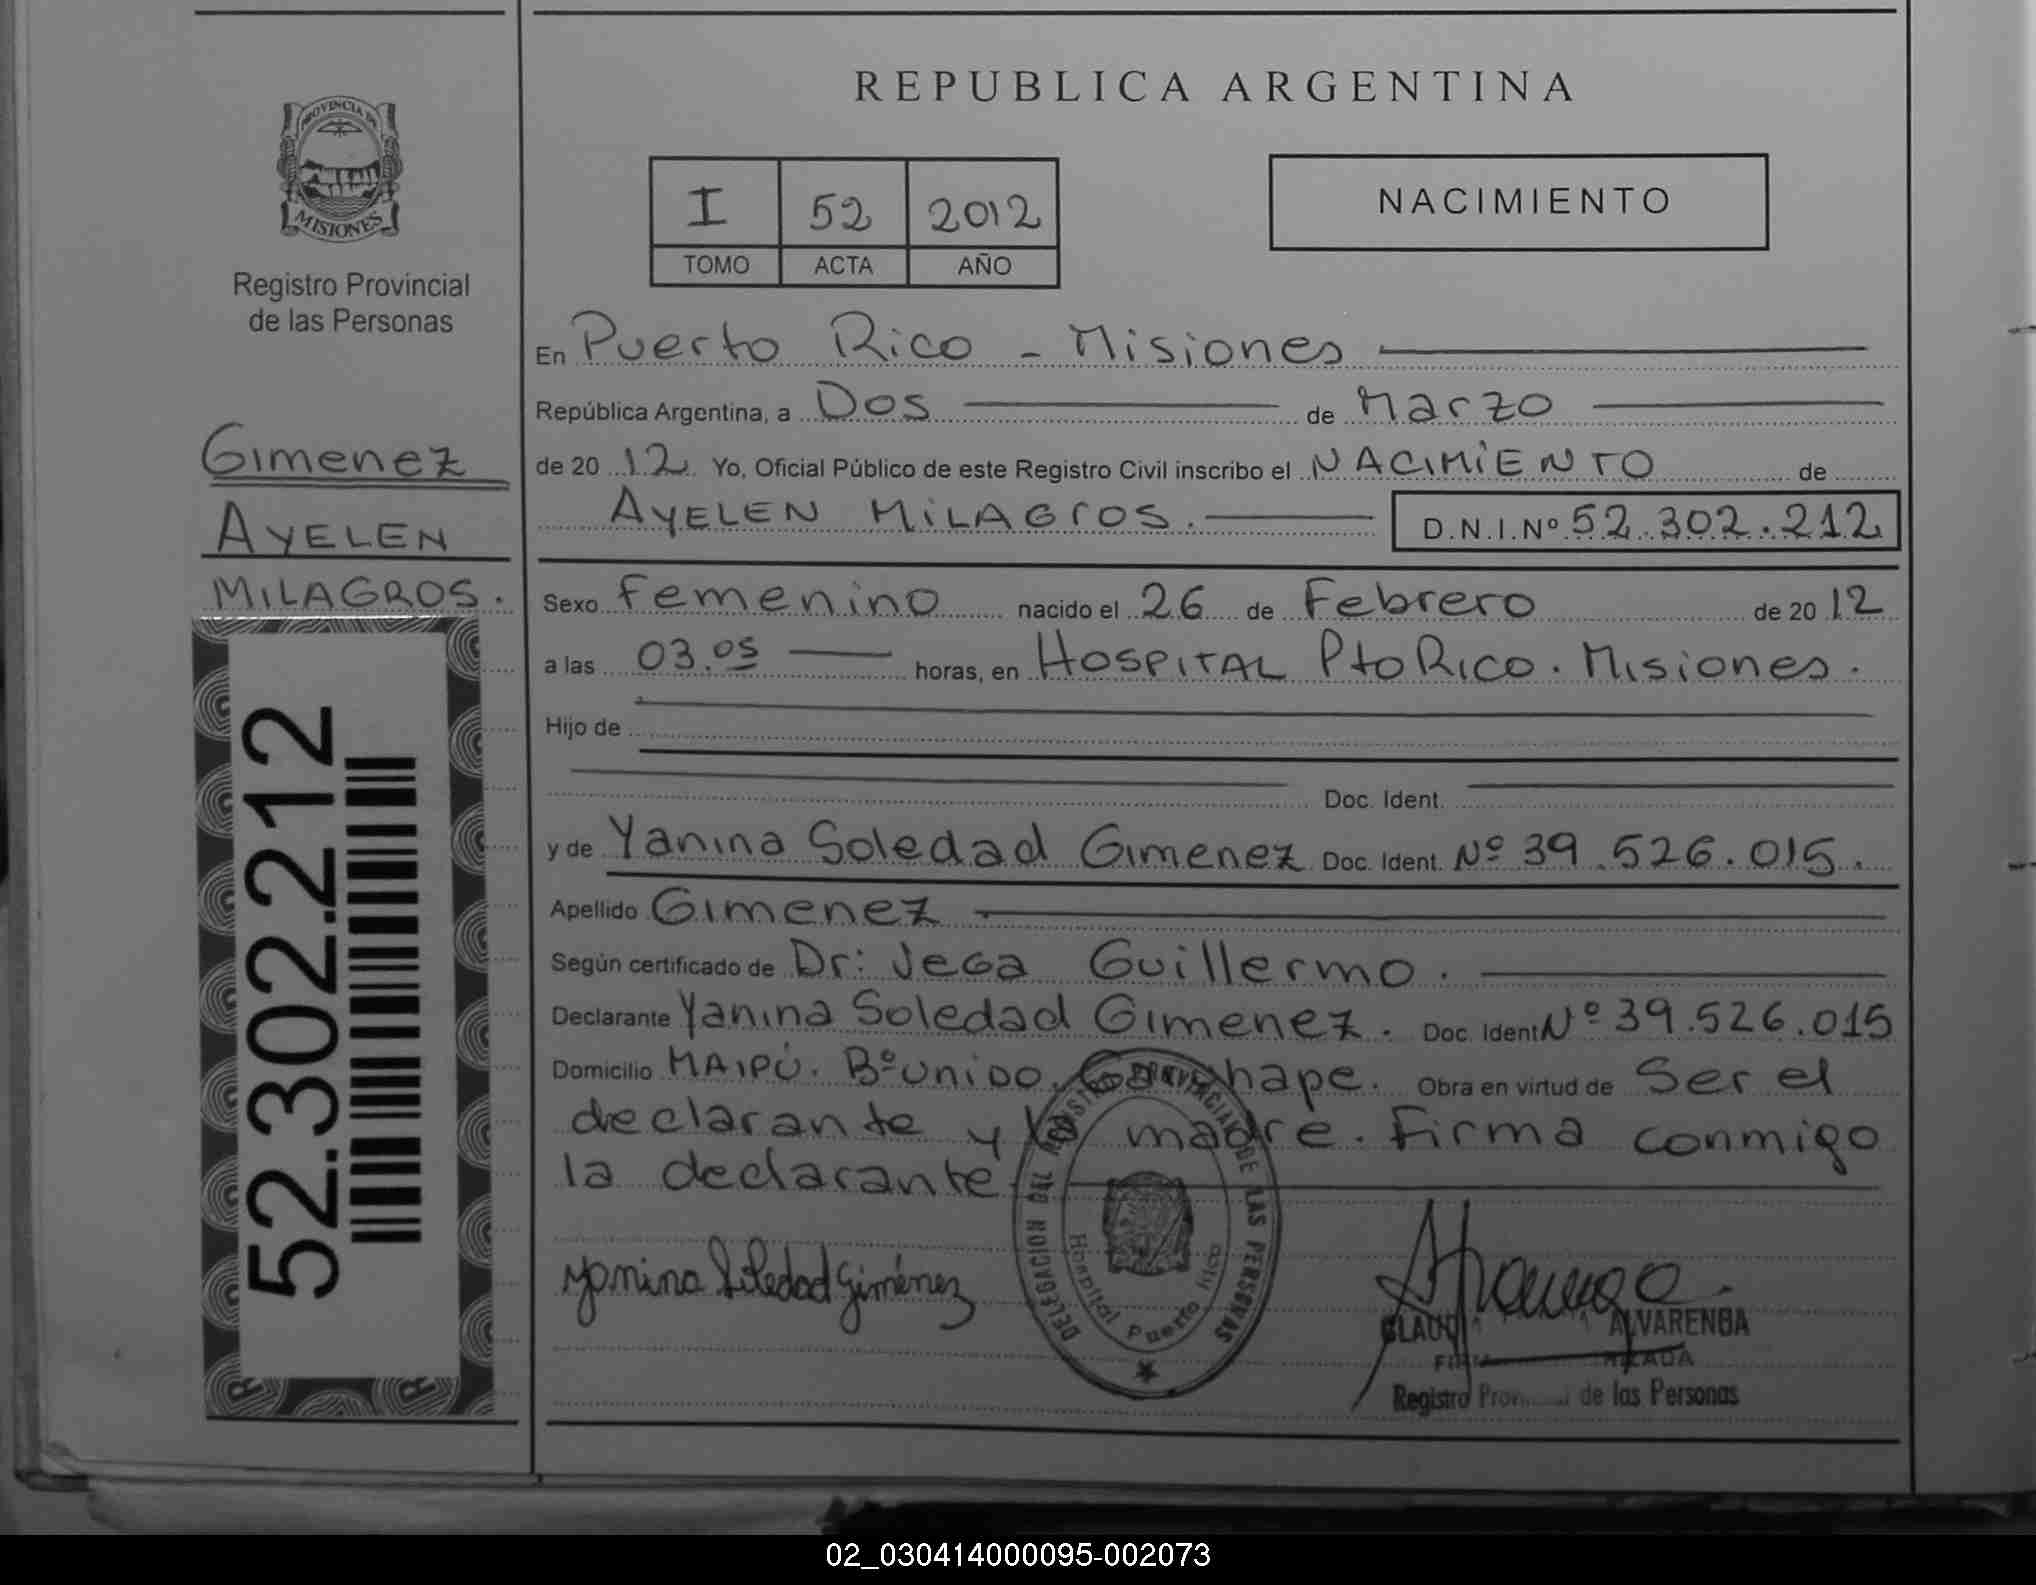 REPUBLICA ARGENTINA
PROVINCIA DE
MISIONES
Registro Provincial
de las Personas
I 52 2012
TOMO ACTA AÑO
NACIMIENTO
En Puerto Rico - Misiones
República Argentina, a Dos de Marzo
Gimenez
AYELEN
MILAGROS.
de 20 12 Yo, Oficial Público de este Registro Civil inscribo el NACIMIENTO de
AYELEN MILAGROS. D.N.I.Nº 52.302.212
Sexo Femenino nacido el 26 de Febrero de 20 12
a las 03.05 horas, en HOSPITAL Pto Rico. Misiones.
Hijo de
Doc. Ident.
y de Yanina Soledad Gimenez Doc. Ident. Nº 39.526.015.
Apellido Gimenez
Según certificado de Dr: Vega Guillermo.
Declarante Yanina Soledad Gimenez. Doc. Ident Nº 39.526.015
Domicilio MAIPÚ. Bº UNIDO. Garuhape. Obra en virtud de Ser el
declarante y la madre. Firma conmigo
la declarante
52.302.212
Yanina Soledad Giménez
DELEGACION DEL REGISTRO PROVINCIAL DE LAS PERSONAS
Hospital Puerto Rico
ALVARENGA
Registro de las Personas
02_030414000095-002073